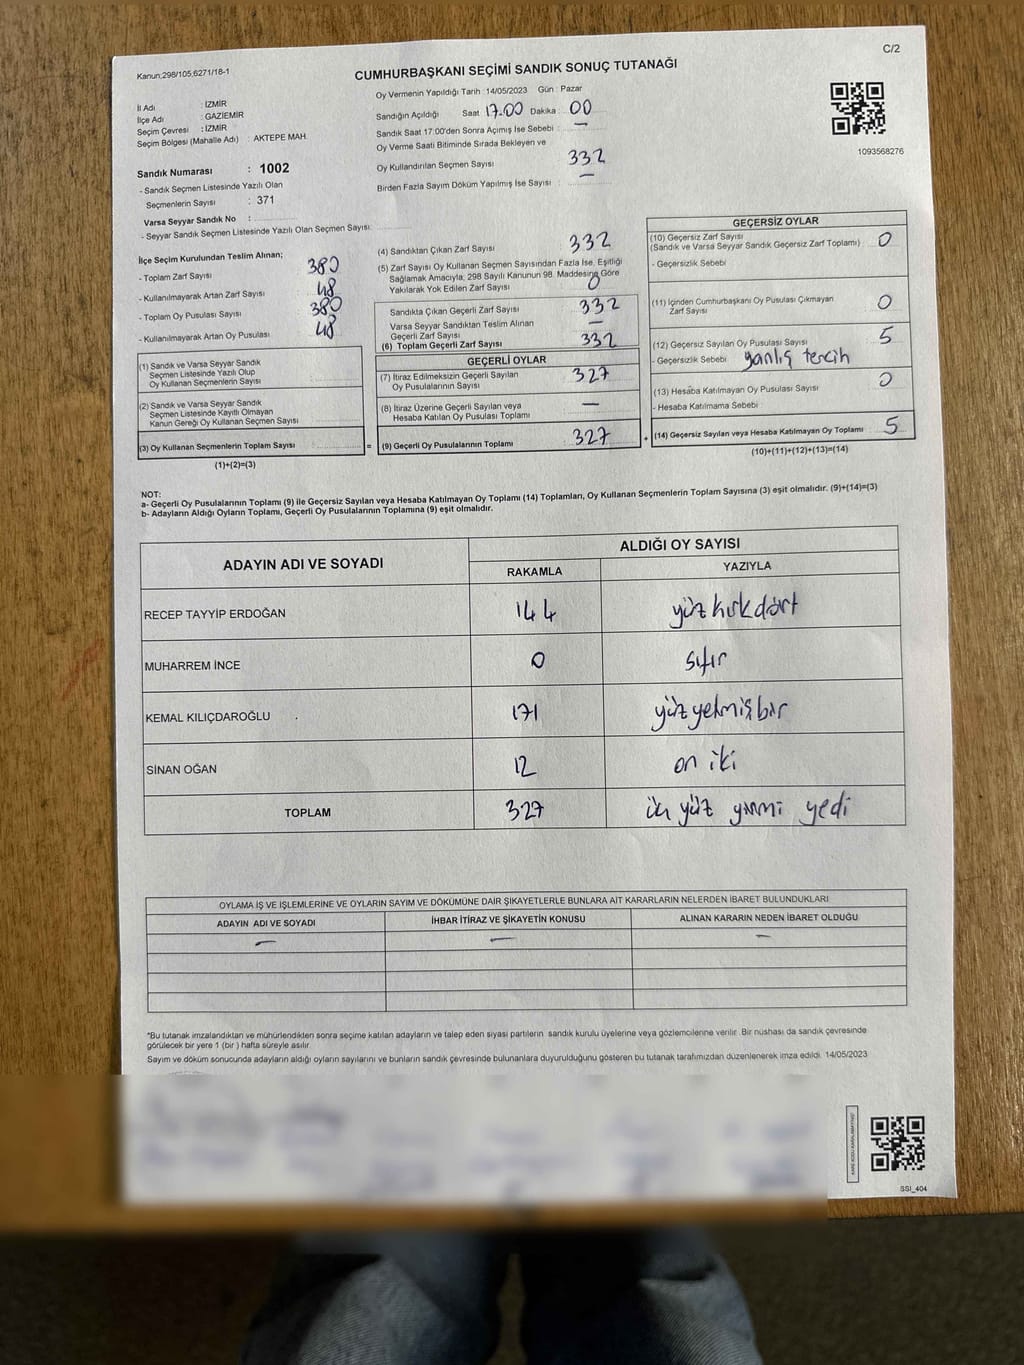 Kanun:298/105;6271/18-1
C/2
CUMHURBAŞKANI SEÇİMİ SANDIK SONUÇ TUTANAĞI
İl Adı : İZMİR
İlçe Adı : GAZİEMİR
Seçim Çevresi : İZMİR
Seçim Bölgesi (Mahalle Adı) : AKTEPE MAH.
Sandık Numarası : 1002
- Sandık Seçmen Listesinde Yazılı Olan
Seçmenlerin Sayısı : 371
Varsa Seyyar Sandık No :
- Seyyar Sandık Seçmen Listesinde Yazılı Olan Seçmen Sayısı:
Oy Vermenin Yapıldığı Tarih :14/05/2023 Gün : Pazar
Sandığın Açıldığı Saat 17.00 Dakika : 00
Sandık Saat 17:00'den Sonra Açımış İse Sebebi : —
Oy Verme Saati Bitiminde Sırada Bekleyen ve
Oy Kullandırılan Seçmen Sayısı 332
Birden Fazla Sayım Döküm Yapılmış İse Sayısı : —
1093568276
İlçe Seçim Kurulundan Teslim Alınan;
- Toplam Zarf Sayısı 380
- Kullanılmayarak Artan Zarf Sayısı 48
- Toplam Oy Pusulası Sayısı 380
- Kullanılmayarak Artan Oy Pusulası 48
(1) Sandık ve Varsa Seyyar Sandık
Seçmen Listesinde Yazılı Olup
Oy Kullanan Seçmenlerin Sayısı
(2) Sandık ve Varsa Seyyar Sandık
Seçmen Listesinde Kayıtlı Olmayan
Kanun Gereği Oy Kullanan Seçmen Sayısı
(3) Oy Kullanan Seçmenlerin Toplam Sayısı
(1)+(2)=(3)
=
(4) Sandıktan Çıkan Zarf Sayısı 332
(5) Zarf Sayısı Oy Kullanan Seçmen Sayısından Fazla İse, Eşitliği
Sağlamak Amacıyla; 298 Sayılı Kanunun 98. Maddesine Göre
Yakılarak Yok Edilen Zarf Sayısı 0
Sandıkta Çıkan Geçerli Zarf Sayısı 332
Varsa Seyyar Sandıktan Teslim Alınan
Geçerli Zarf Sayısı —
(6) Toplam Geçerli Zarf Sayısı 332
GEÇERLİ OYLAR
(7) İtiraz Edilmeksizin Geçerli Sayılan
Oy Pusulalarının Sayısı 327
(8) İtiraz Üzerine Geçerli Sayılan veya
Hesaba Katılan Oy Pusulası Toplamı —
(9) Geçerli Oy Pusulalarının Toplamı 327
+
GEÇERSİZ OYLAR
(10) Geçersiz Zarf Sayısı
(Sandık ve Varsa Seyyar Sandık Geçersiz Zarf Toplamı) 0
- Geçersizlik Sebebi
(11) İçinden Cumhurbaşkanı Oy Pusulası Çıkmayan
Zarf Sayısı 0
(12) Geçersiz Sayılan Oy Pusulası Sayısı 5
- Geçersizlik Sebebi yanlış tercih
(13) Hesaba Katılmayan Oy Pusulası Sayısı 0
- Hesaba Katılmama Sebebi
(14) Geçersiz Sayılan veya Hesaba Katılmayan Oy Toplamı 5
(10)+(11)+(12)+(13)=(14)
NOT:
a- Geçerli Oy Pusulalarının Toplamı (9) ile Geçersiz Sayılan veya Hesaba Katılmayan Oy Toplamı (14) Toplamları, Oy Kullanan Seçmenlerin Toplam Sayısına (3) eşit olmalıdır. (9)+(14)=(3)
b- Adayların Aldığı Oyların Toplamı, Geçerli Oy Pusulalarının Toplamına (9) eşit olmalıdır.
ADAYIN ADI VE SOYADI
ALDIĞI OY SAYISI
RAKAMLA YAZIYLA
RECEP TAYYİP ERDOĞAN 144 yüz kırk dört
MUHARREM İNCE 0 sıfır
KEMAL KILIÇDAROĞLU 171 yüz yetmiş bir
SİNAN OĞAN 12 on iki
TOPLAM 327 üç yüz yirmi yedi
OYLAMA İŞ VE İŞLEMLERİNE VE OYLARIN SAYIM VE DÖKÜMÜNE DAİR ŞİKAYETLERLE BUNLARA AİT KARARLARIN NELERDEN İBARET BULUNDUKLARI
ADAYIN ADI VE SOYADI İHBAR İTİRAZ VE ŞİKAYETİN KONUSU ALINAN KARARIN NEDEN İBARET OLDUĞU
— — —
*Bu tutanak imzalandıktan ve mühürlendikten sonra seçime katılan adayların ve talep eden siyasi partilerin sandık kurulu üyelerine veya gözlemcilerine verilir. Bir nüshası da sandık çevresinde
görülecek bir yere 1 (bir ) hafta süreyle asılır.
Sayım ve döküm sonucunda adayların aldığı oyların sayılarını ve bunların sandık çevresinde bulunanlara duyurulduğunu gösteren bu tutanak tarafımızdan düzenlenerek imza edildi. 14/05/2023
SSİ_404